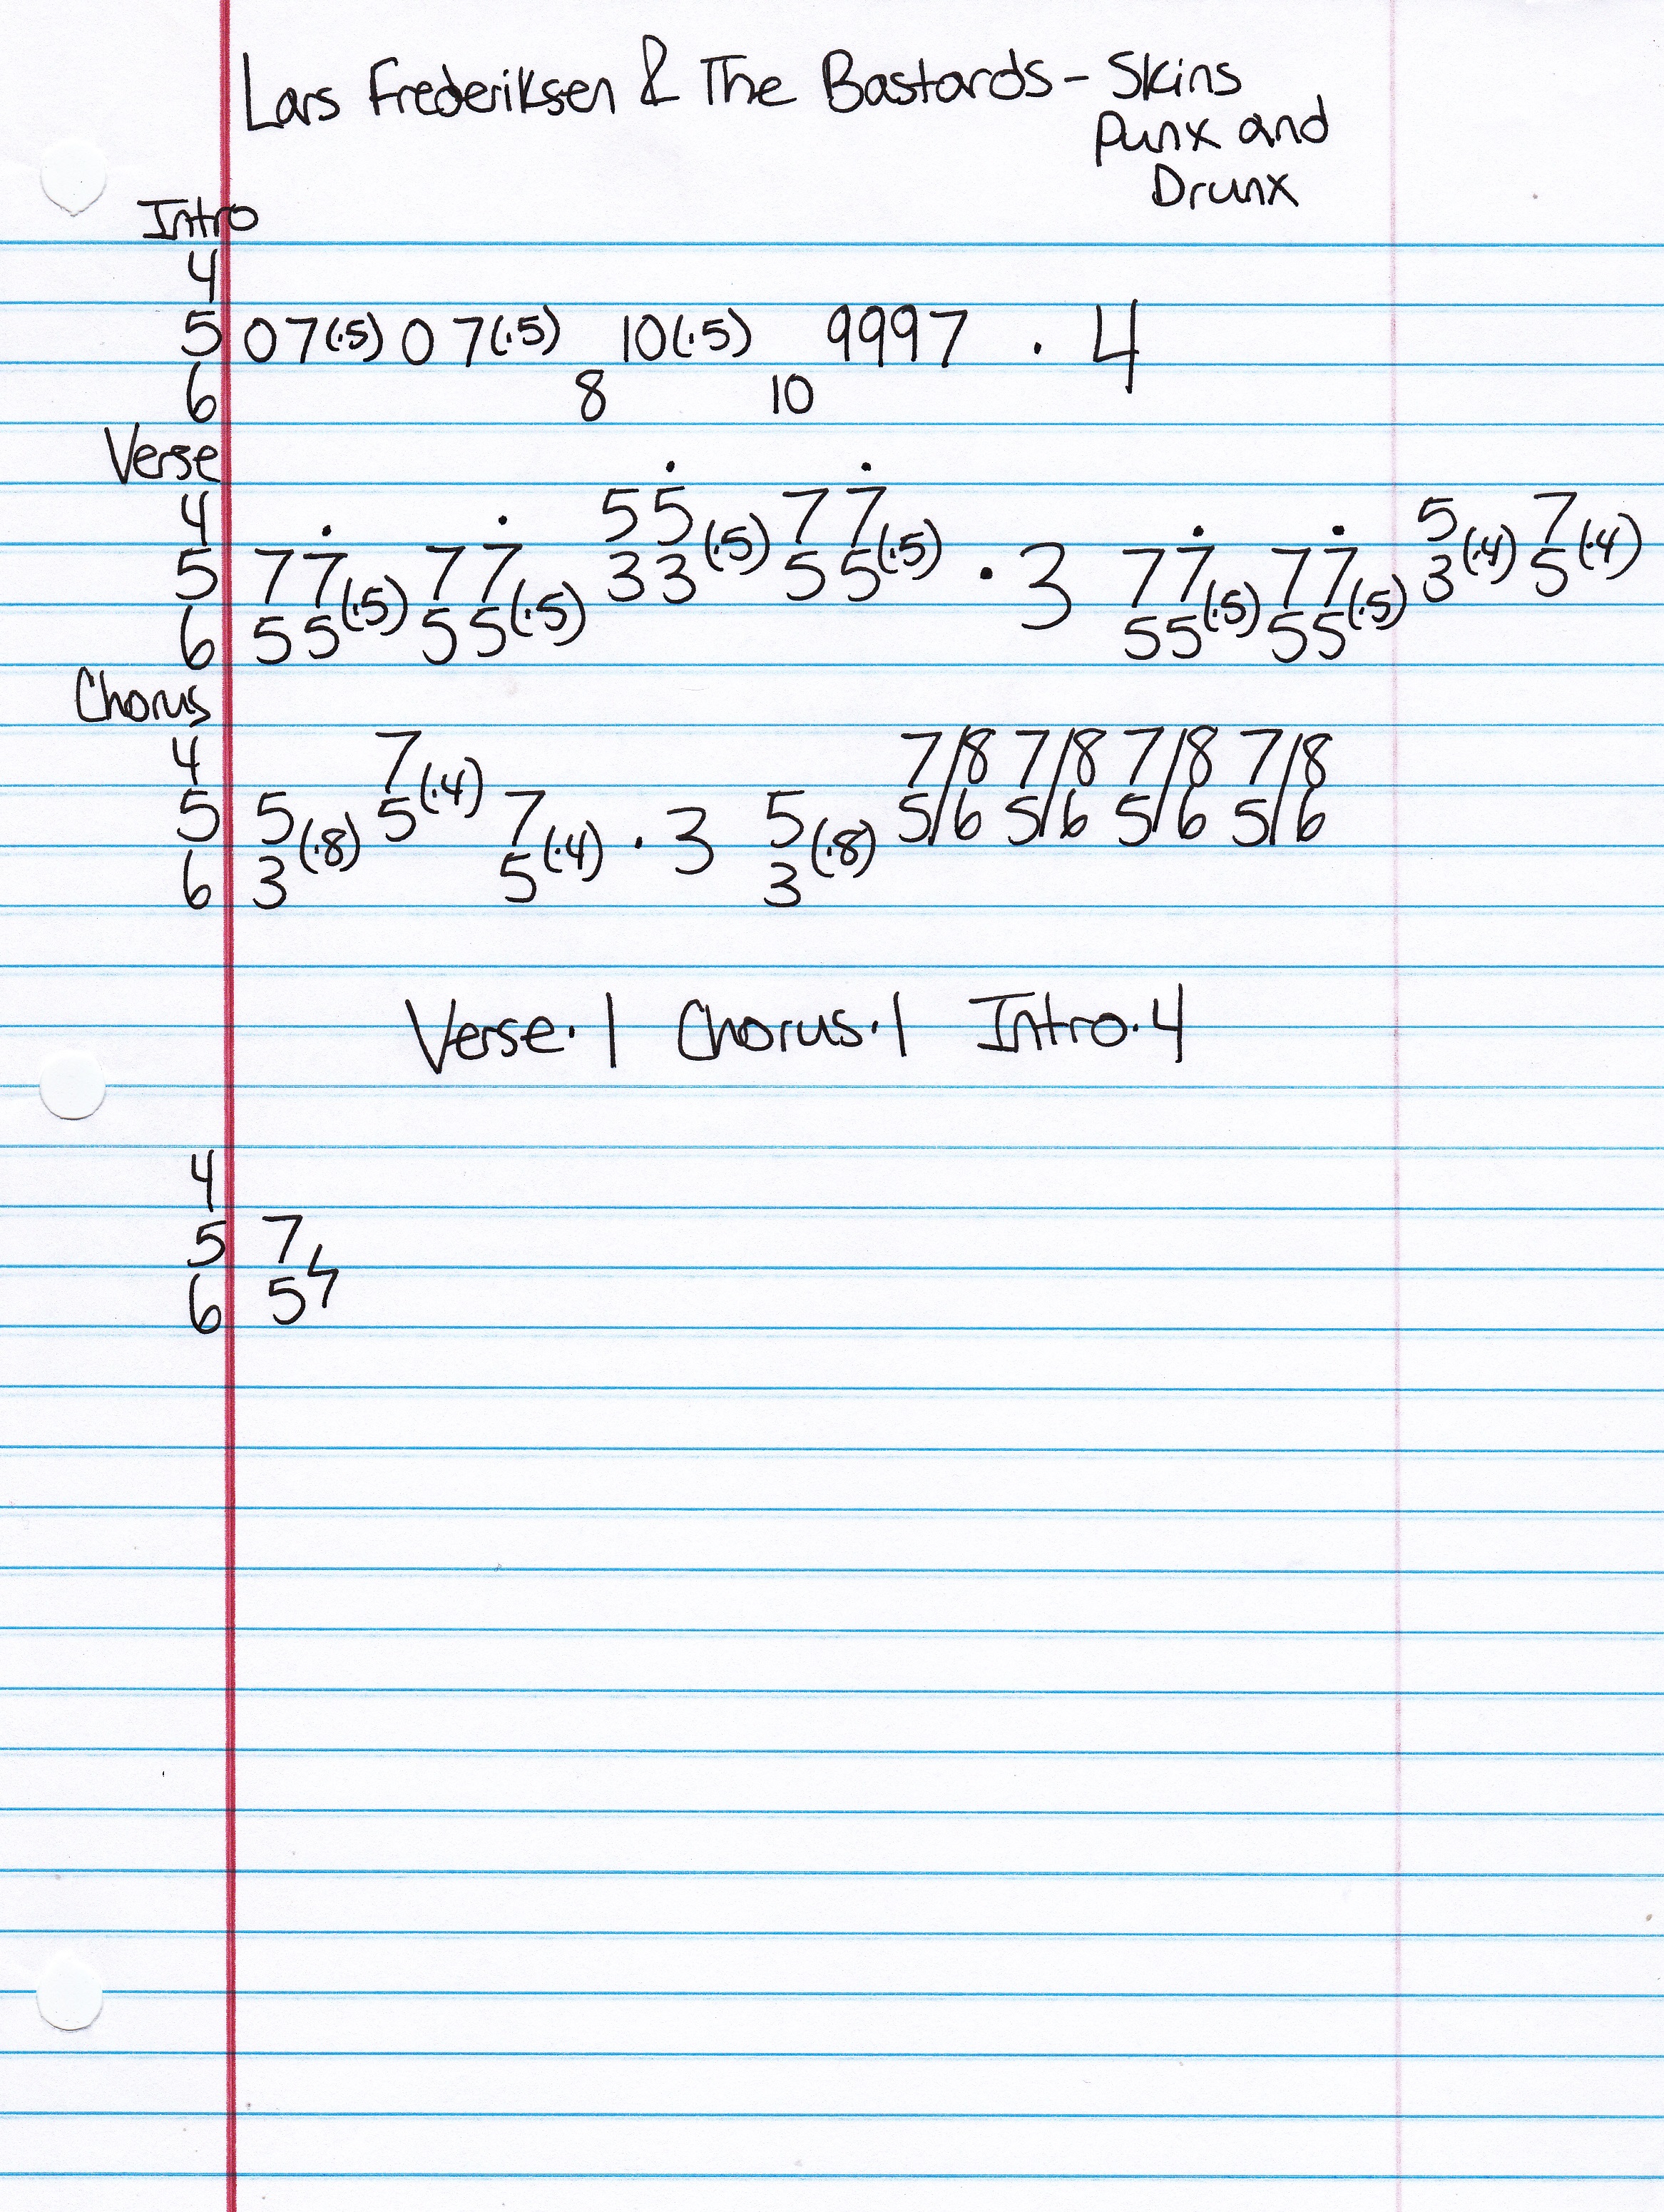 Lars Frederiksen & The Bastards - Skins
Punx and
Drunx
Intro
4
5 0 7(.5) 0 7(.5) 10(.5) 9997 . 4
6 8 10
Verse
4 55 77 5 7
5 77 77 33(.5) 55(.5) . 3 77 77 3(.4) 5(.4)
6 55(.5) 55(.5) 55(.5) 55(.5)
Chorus
4 7 7/8 7/8 7/8 7/8
5 5 5(.4) 7 . 3 5 5/6 5/6 5/6 5/6
6 3(.8) 5(.4) 3(.8)
Verse.1 Chorus.1 Intro.4
4
5 7
6 5